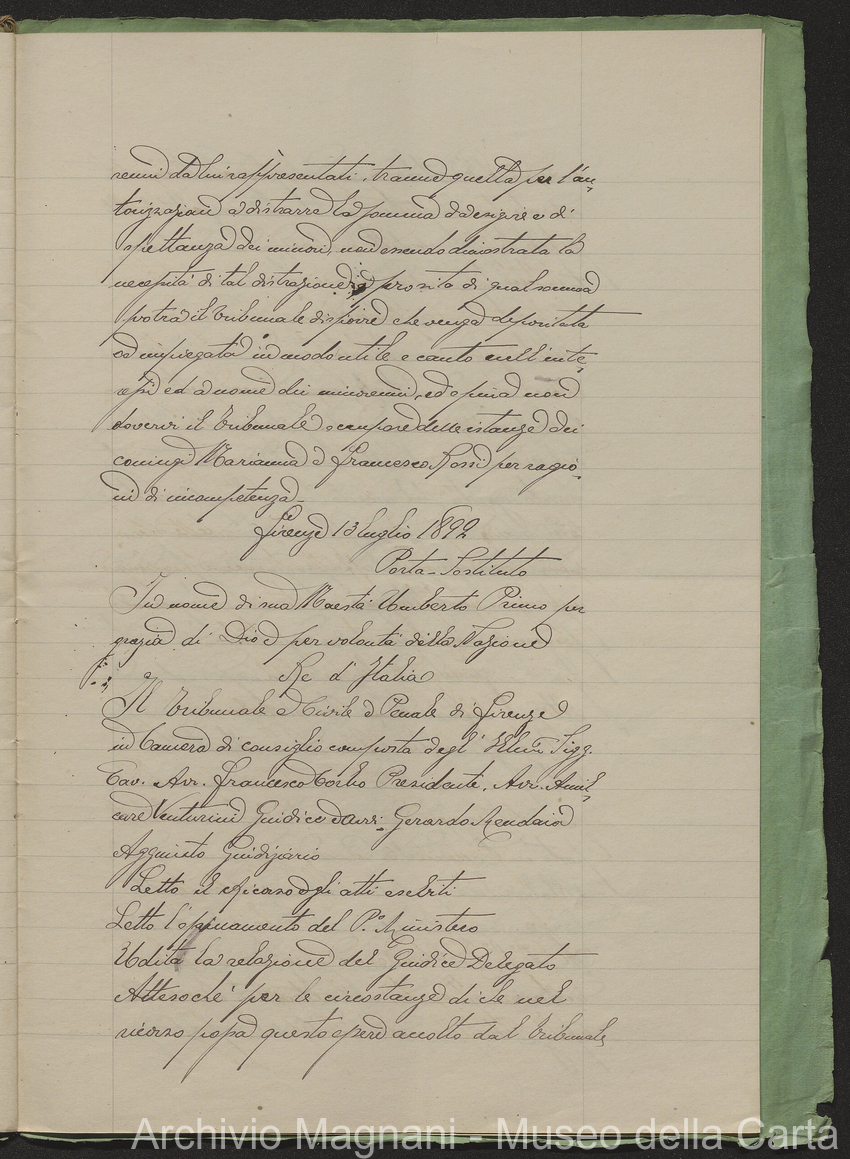 renni da lui rappresentati, tranne quella per l'au=
torizzazione a distrarre la somma da esigere e di
spettanza dei minori, non essendo dimostrata la
necessità di tal distrazione, e a proposito di qual somma
potrà il Tribunale disporre che venga depositata
od impiegata in modo utile e cauto nell'inte=
resse ed a nome dei minorenni, ed opina non
doversi il Tribunale occupare delle istanze dei
coniugi Marianna e Francesco Rossi per ragio=
ni di incompetenza_
Firenze 13 luglio 1892
Porta - Sostituto
In nome di sua Maestà Umberto Primo per
grazia di Dio e per volontà della Nazione
Re d'Italia
Il Tribunale Civile e Penale di Firenze
in Camera di consiglio composta degl' Illmi Sigg.
Cav. Avv. Francesco Presidente, Avv. Amil=
care Venturini Giudice e Avv. Gerardo
Aggiunto Giudiziario
Letto il ricorso e gli atti esebiti
Letto l'opinamento del P. Ministero
Udita la relazione del Giudice Delegato
Attesochè per le circostanze di che nel
ricorso possa questo essere accolto dal Tribunale
Archivio Magnani - Museo della Carta